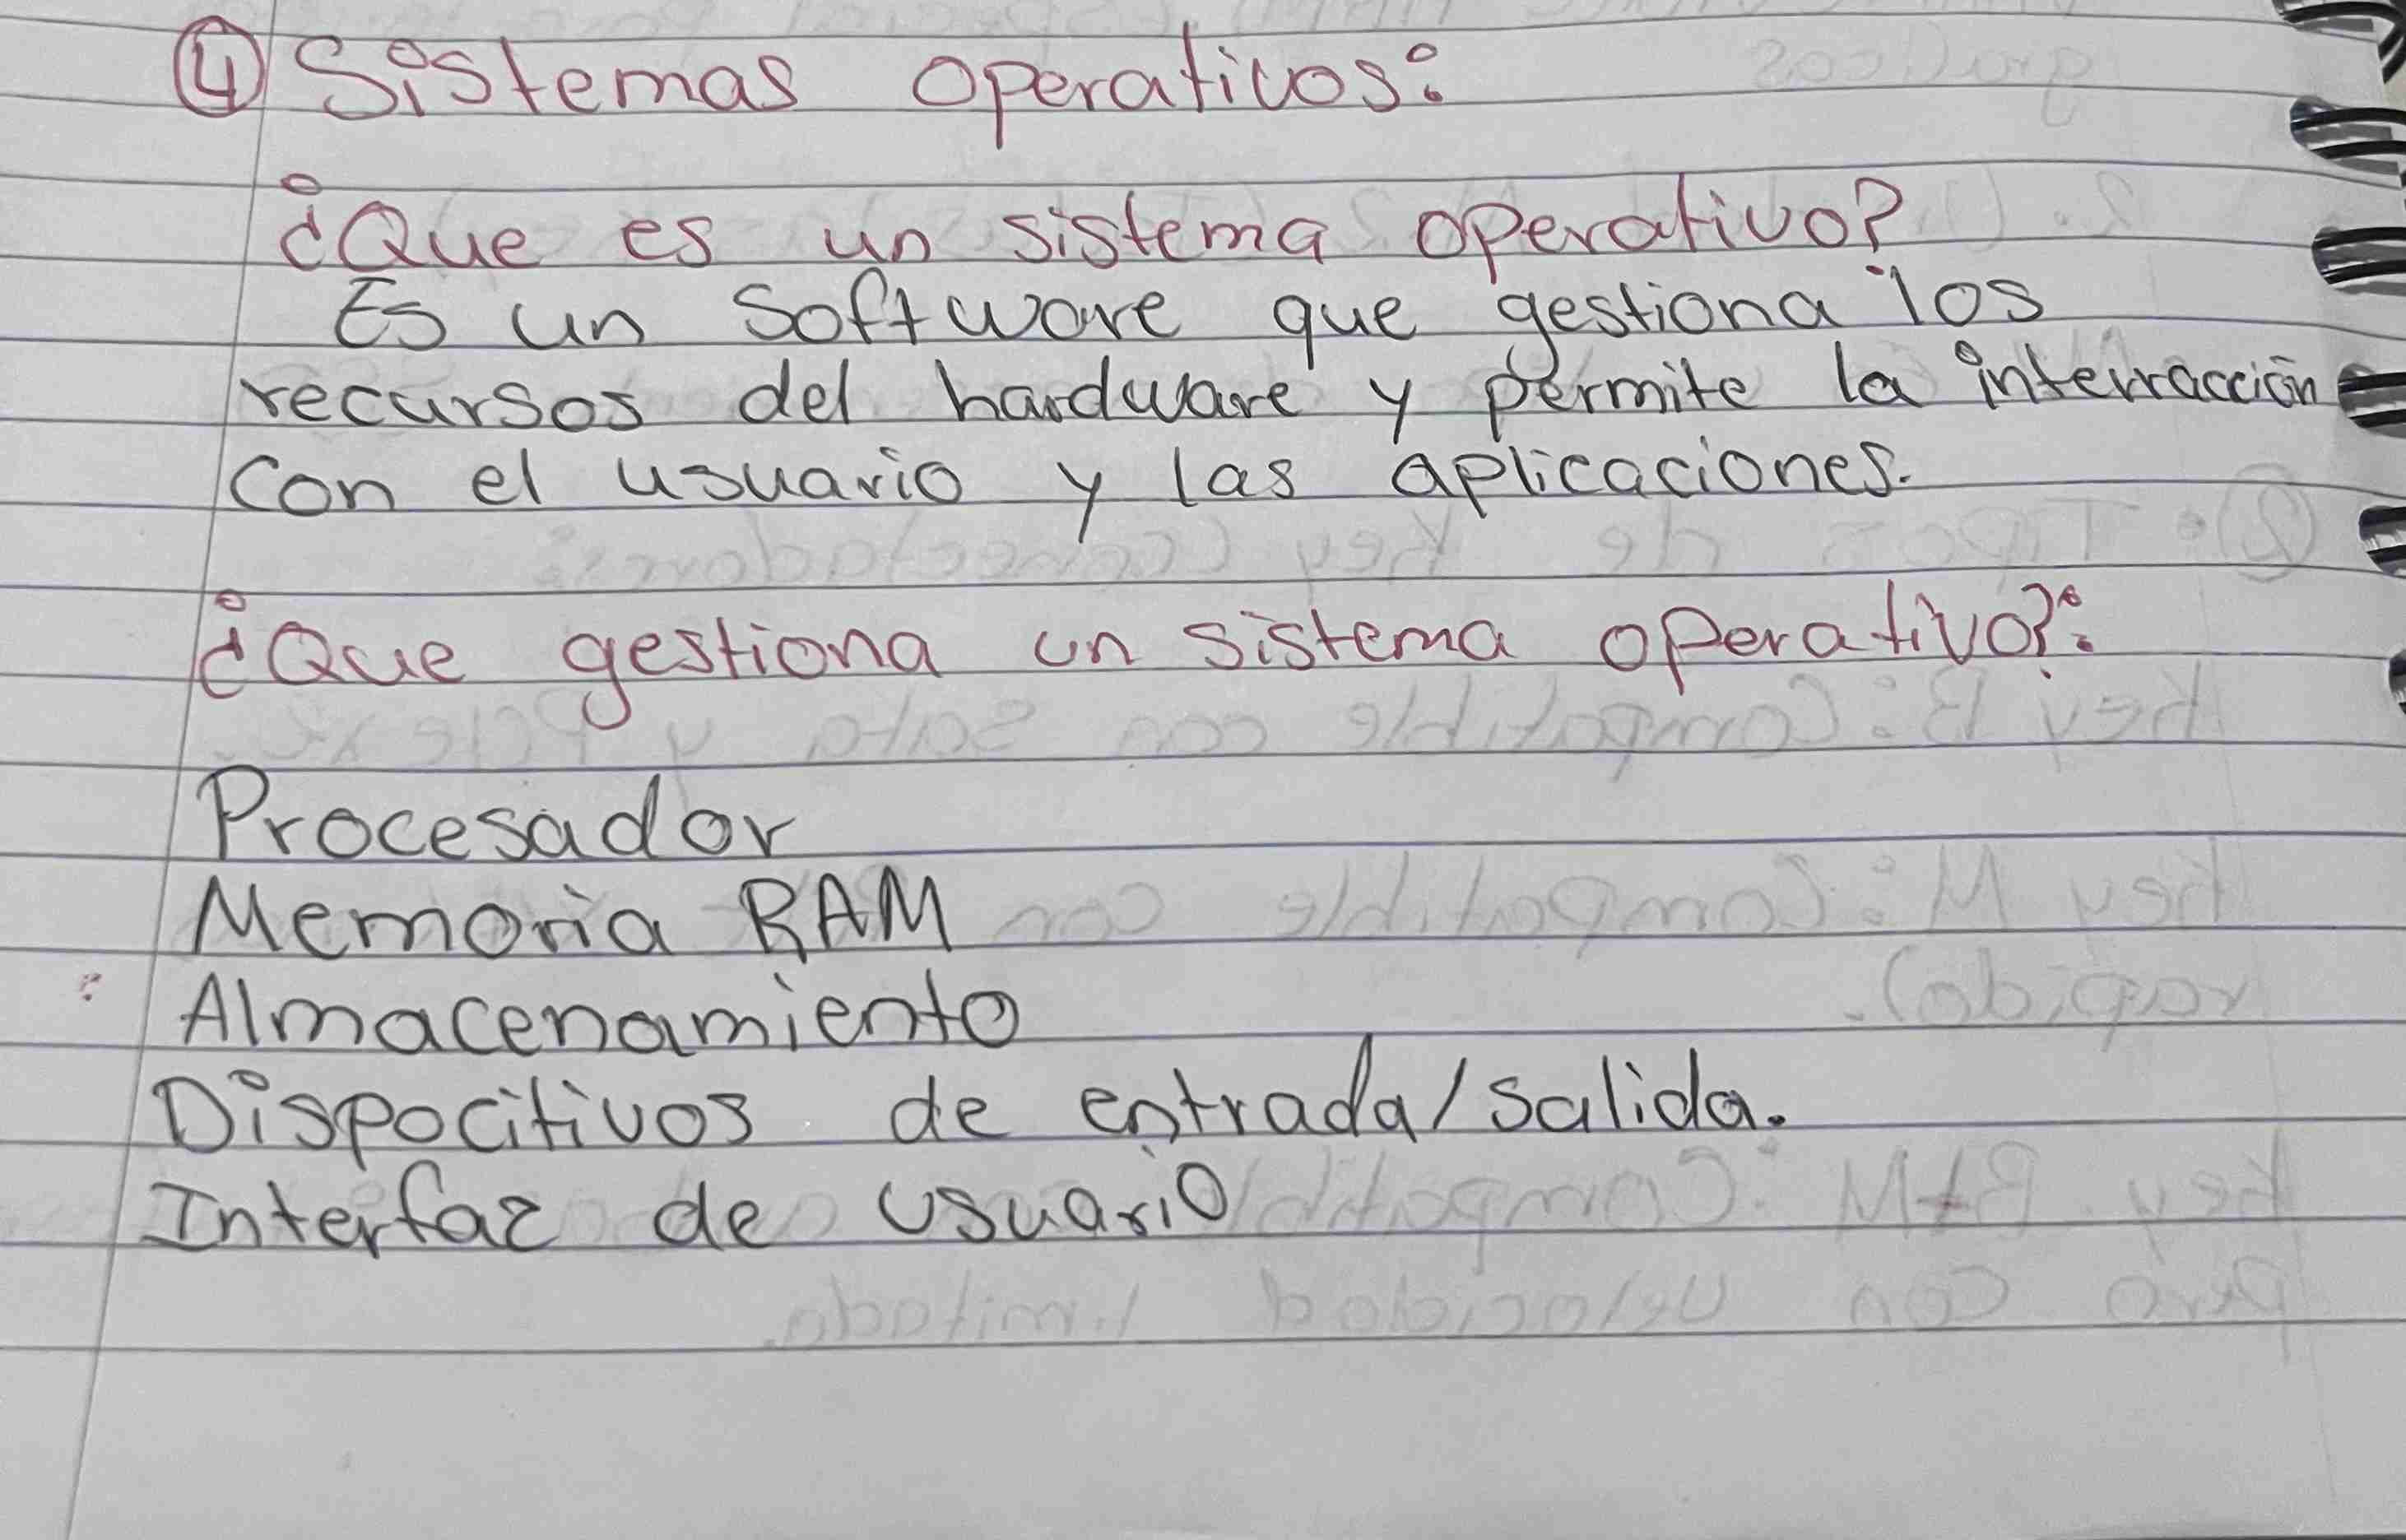 ④ Sistemas operativos:
¿Que es un sistema operativo?
Es un Software que gestiona los
recursos del hardware y permite la interracción
con el usuario y las aplicaciones.
¿Que gestiona un sistema operativo?:
Procesador
Memoria RAM
Almacenamiento
Dispocitivos de entrada/salida.
Interfaz de usuario